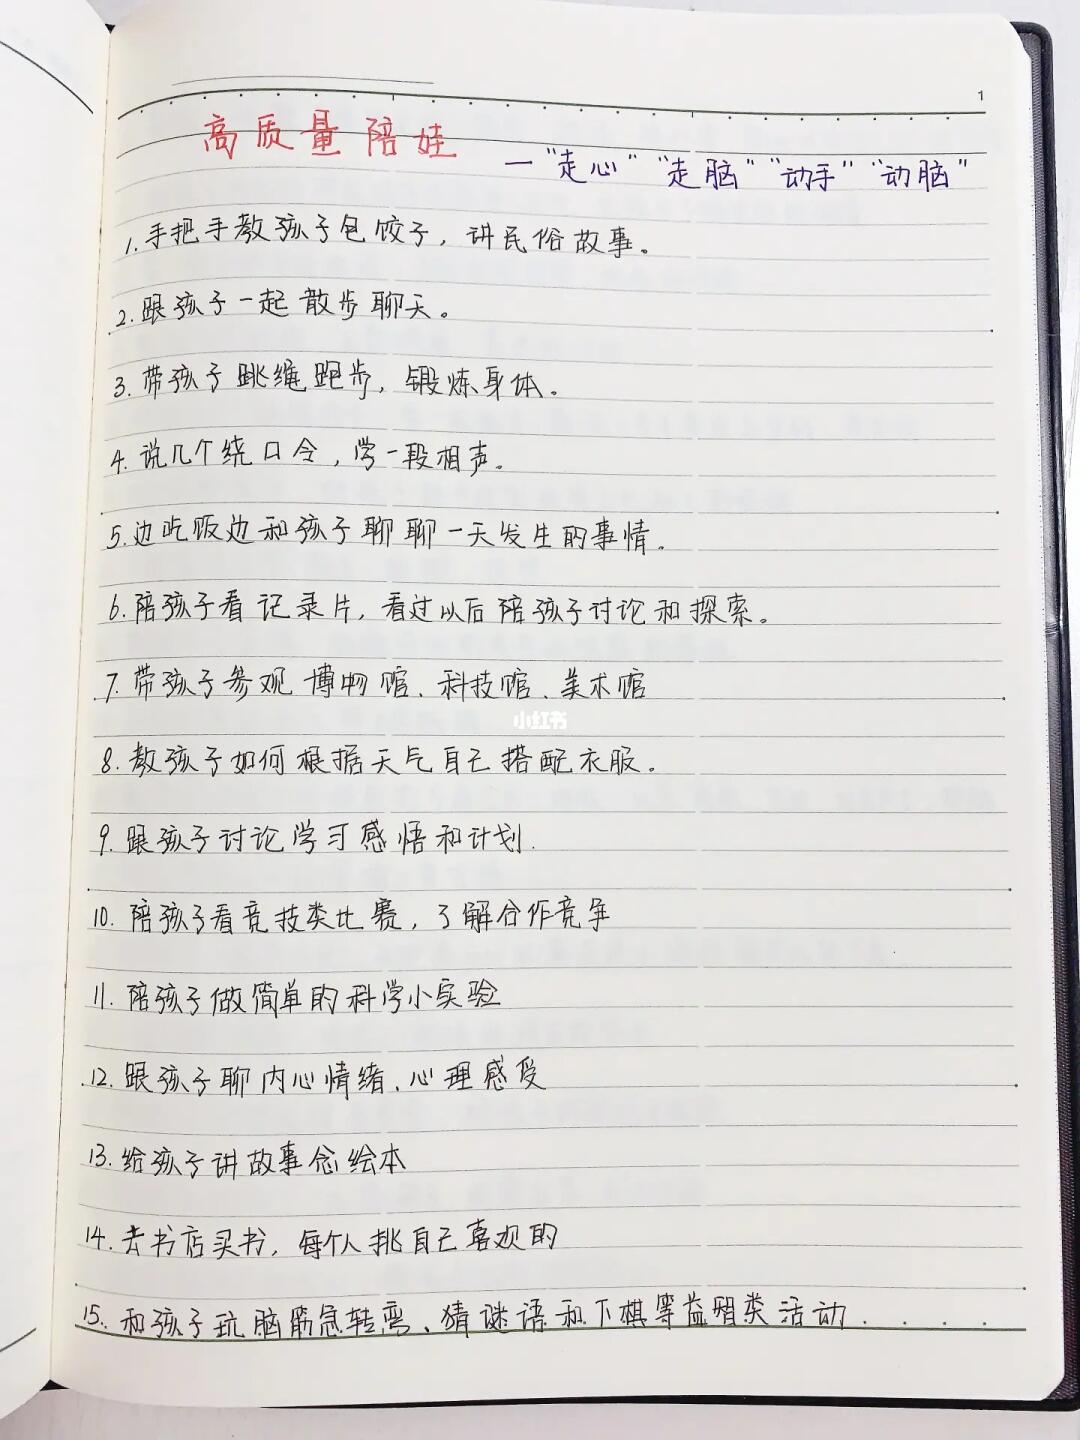 1
高质量陪娃
一"走心""走脑""动手""动脑"
1.手把手教孩子包饺子，讲民俗故事。
2.跟孩子一起散步聊天。
3.带孩子跳绳跑步，锻炼身体。
4.说几个绕口令，学一段相声。
5.边吃饭边和孩子聊聊一天发生的事情.
6.陪孩子看记录片，看过以后陪孩子讨论和探索。
7.带孩子参观博物馆、科技馆、美术馆
小红书
8.教孩子如何根据天气自己搭配衣服。
9.跟孩子讨论学习感悟和计划.
10.陪孩子看竞技类比赛，了解合作竞争
11.陪孩子做简单的科学小实验
12.跟孩子聊内心情绪、心理感受
13.给孩子讲故事念绘本
14.去书店买书，每个人挑自己喜欢的
15.和孩子玩脑筋急转弯、猜谜语和下棋等益智类活动.